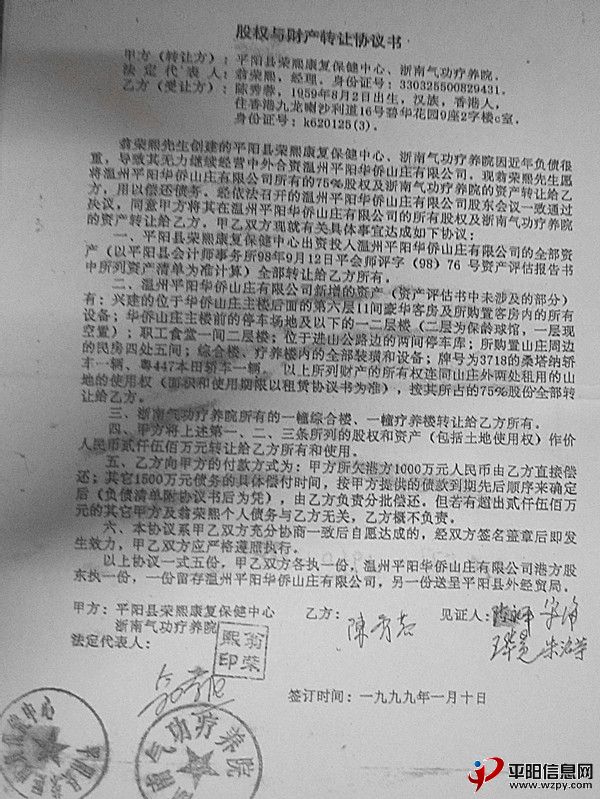 股权与财产转让协议书
甲方（转让方）：平阳县荣熙康复保健中心、浙南气功疗养院。
法定代表人：翁荣熙，经理，身份证号：330325500829431。
乙方（受让方）：陈秀蓉，1959年8月2日出生，汉族，香港人，
住香港九龙喇沙利道16号碧华花园9座2字楼c室，
身份证号：k620125(3)。
翁荣熙先生创建的平阳县荣熙康复保健中心、浙南气功疗养院因近年负债很
重，导致其无力继续经营中外合资温州平阳华侨山庄有限公司。现翁荣熙先生愿
将温州平阳华侨山庄有限公司所有的75%股权及浙南气功疗养院的资产转让给乙
方，用以偿还债务。经依法召开的温州平阳华侨山庄有限公司股东会议一致通过
决议，同意甲方将其在温州平阳华侨山庄有限公司的所有股权及浙南气功疗养院
的资产转让给乙方。甲乙双方现就有关具体事宜达成如下协议：
一、平阳县荣熙康复保健中心出资投入温州平阳华侨山庄有限公司的全部资
产（以平阳县会计师事务所98年9月12日平会师评字（98）76 号资产评估报告书
中所列资产清单为准计算）全部转让给乙方所有。
二、温州平阳华侨山庄有限公司新增的资产（资产评估书中未涉及的部分）
有：兴建的位于华侨山庄主楼后面的第六层11间豪华客房及所购置客房内的所有
设备；华侨山庄主楼前的停车场地及以下的一二层楼（二层为保龄球馆，一层现
空置）；职工食堂一间二层楼；位于进山公路边的两间停车库；所购置山庄周边
的民房四处五间；综合楼、疗养楼内的全部装璜和设备；牌号为3718的桑塔纳轿
车一辆、粤447本田轿车一辆。以上所列财产的所有权连同山庄外两处租用的山
地的使用权（面积和使用期限以租赁协议书为准），按其所占的75%股份全部转
让给乙方。
三、浙南气功疗养院所有的一幢综合楼、一幢疗养楼转让给乙方所有。
四、甲方将上述第一、二、三条所列的股权和资产（包括土地使用权）作价
人民币贰仟伍佰万元转让给乙方所有和使用。
五、乙方向甲方的付款方式为：甲方所欠港方1000万元人民币由乙方直接偿
还；其它1500万元债务的具体偿付时间，按甲方提供的债款到期先后顺序来确定
后（负债清单附协议书后为凭），由乙方负责分批偿还。但若有超出贰仟伍佰万
元的其它甲方及翁荣熙个人债务与乙方无关，乙方概不负责。
六、本协议系甲乙双方充分协商一致后自愿达成的，经双方签名盖章后即发
生效力，甲乙双方应严格遵照执行。
以上协议一式五份，甲乙双方各执一份，温州平阳华侨山庄有限公司港方股
东执一份，一份留存温州平阳华侨山庄有限公司，另一份送呈平阳县外经贸局。
甲方：平阳县荣熙康复保健中心 乙方：陈秀蓉 见证人：
浙南气功疗养院
法定代表人：
翁荣熙印
签订时间：一九九九年一月十日
平阳县荣熙康复保健中心
浙南气功疗养院
平阳信息网
www.wzpy.com